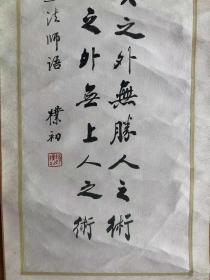 之外無勝人之術
之外無上人之術
法师语
樸初